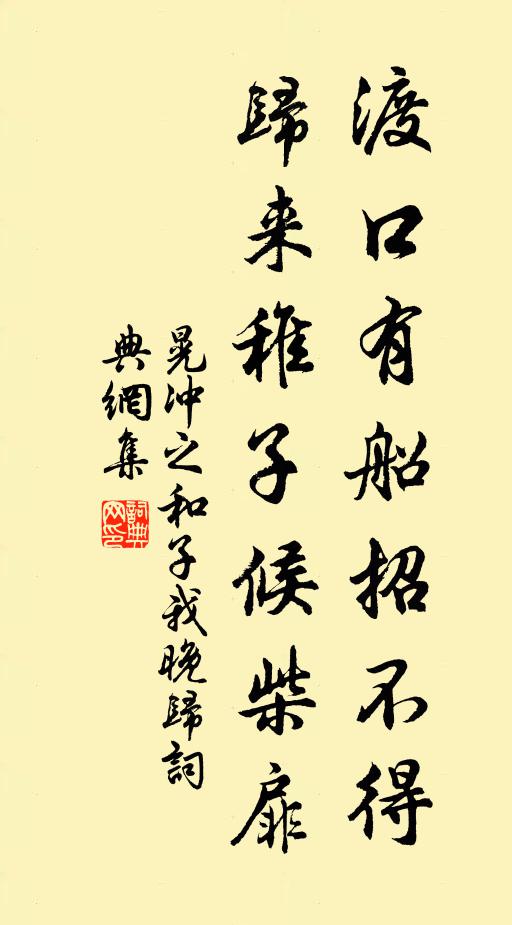 渡口有船招不得
歸来稚子候柴扉
晁沖之和子我晚歸詞
典網集
詞典網印